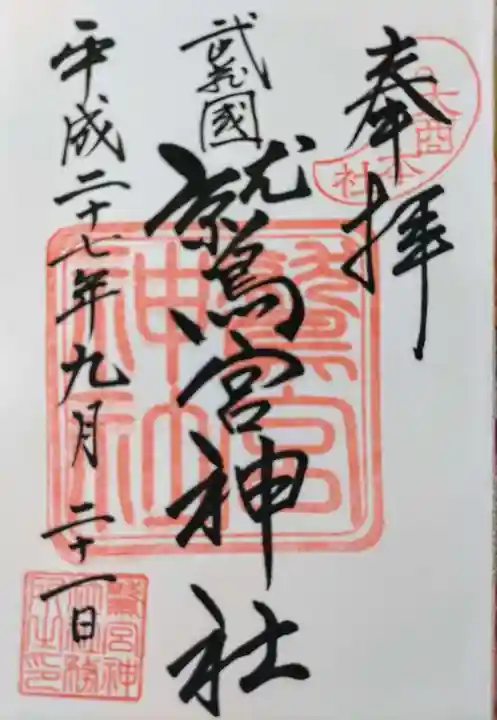 奉拝
大酉本社
武蔵國
鷲宮神社
鷲宮神社
平成二十七年九月二十一日
鷲宮神